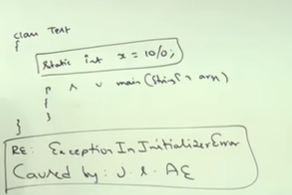 class Test
{
static int x = 10/0;
p s v main (String[] args)
{
}
}
RE: ExceptionInInitializerError
Caused by: J.l.AE